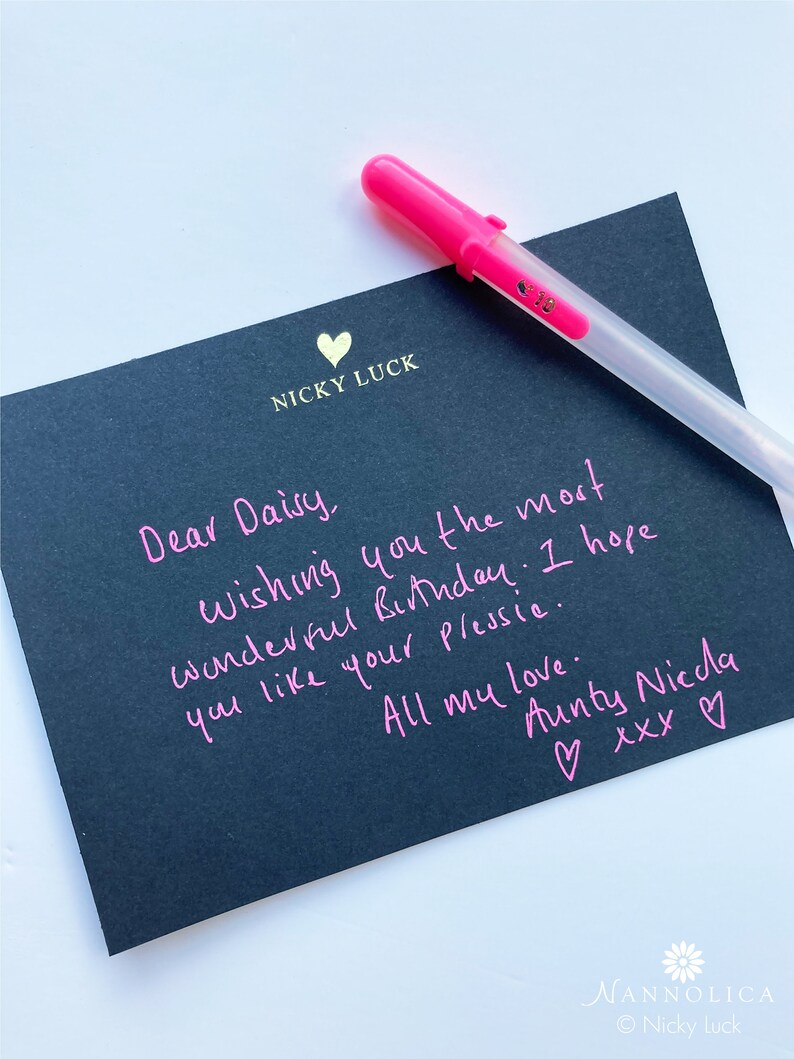 10
NICKY LUCK
Dear Daisy,
wishing you the most
wonderful Birthday. I hope
you like your pressie.
All my love.
Aunty Nicola
♡ xxx ♡
NANNOLICA
© Nicky Luck